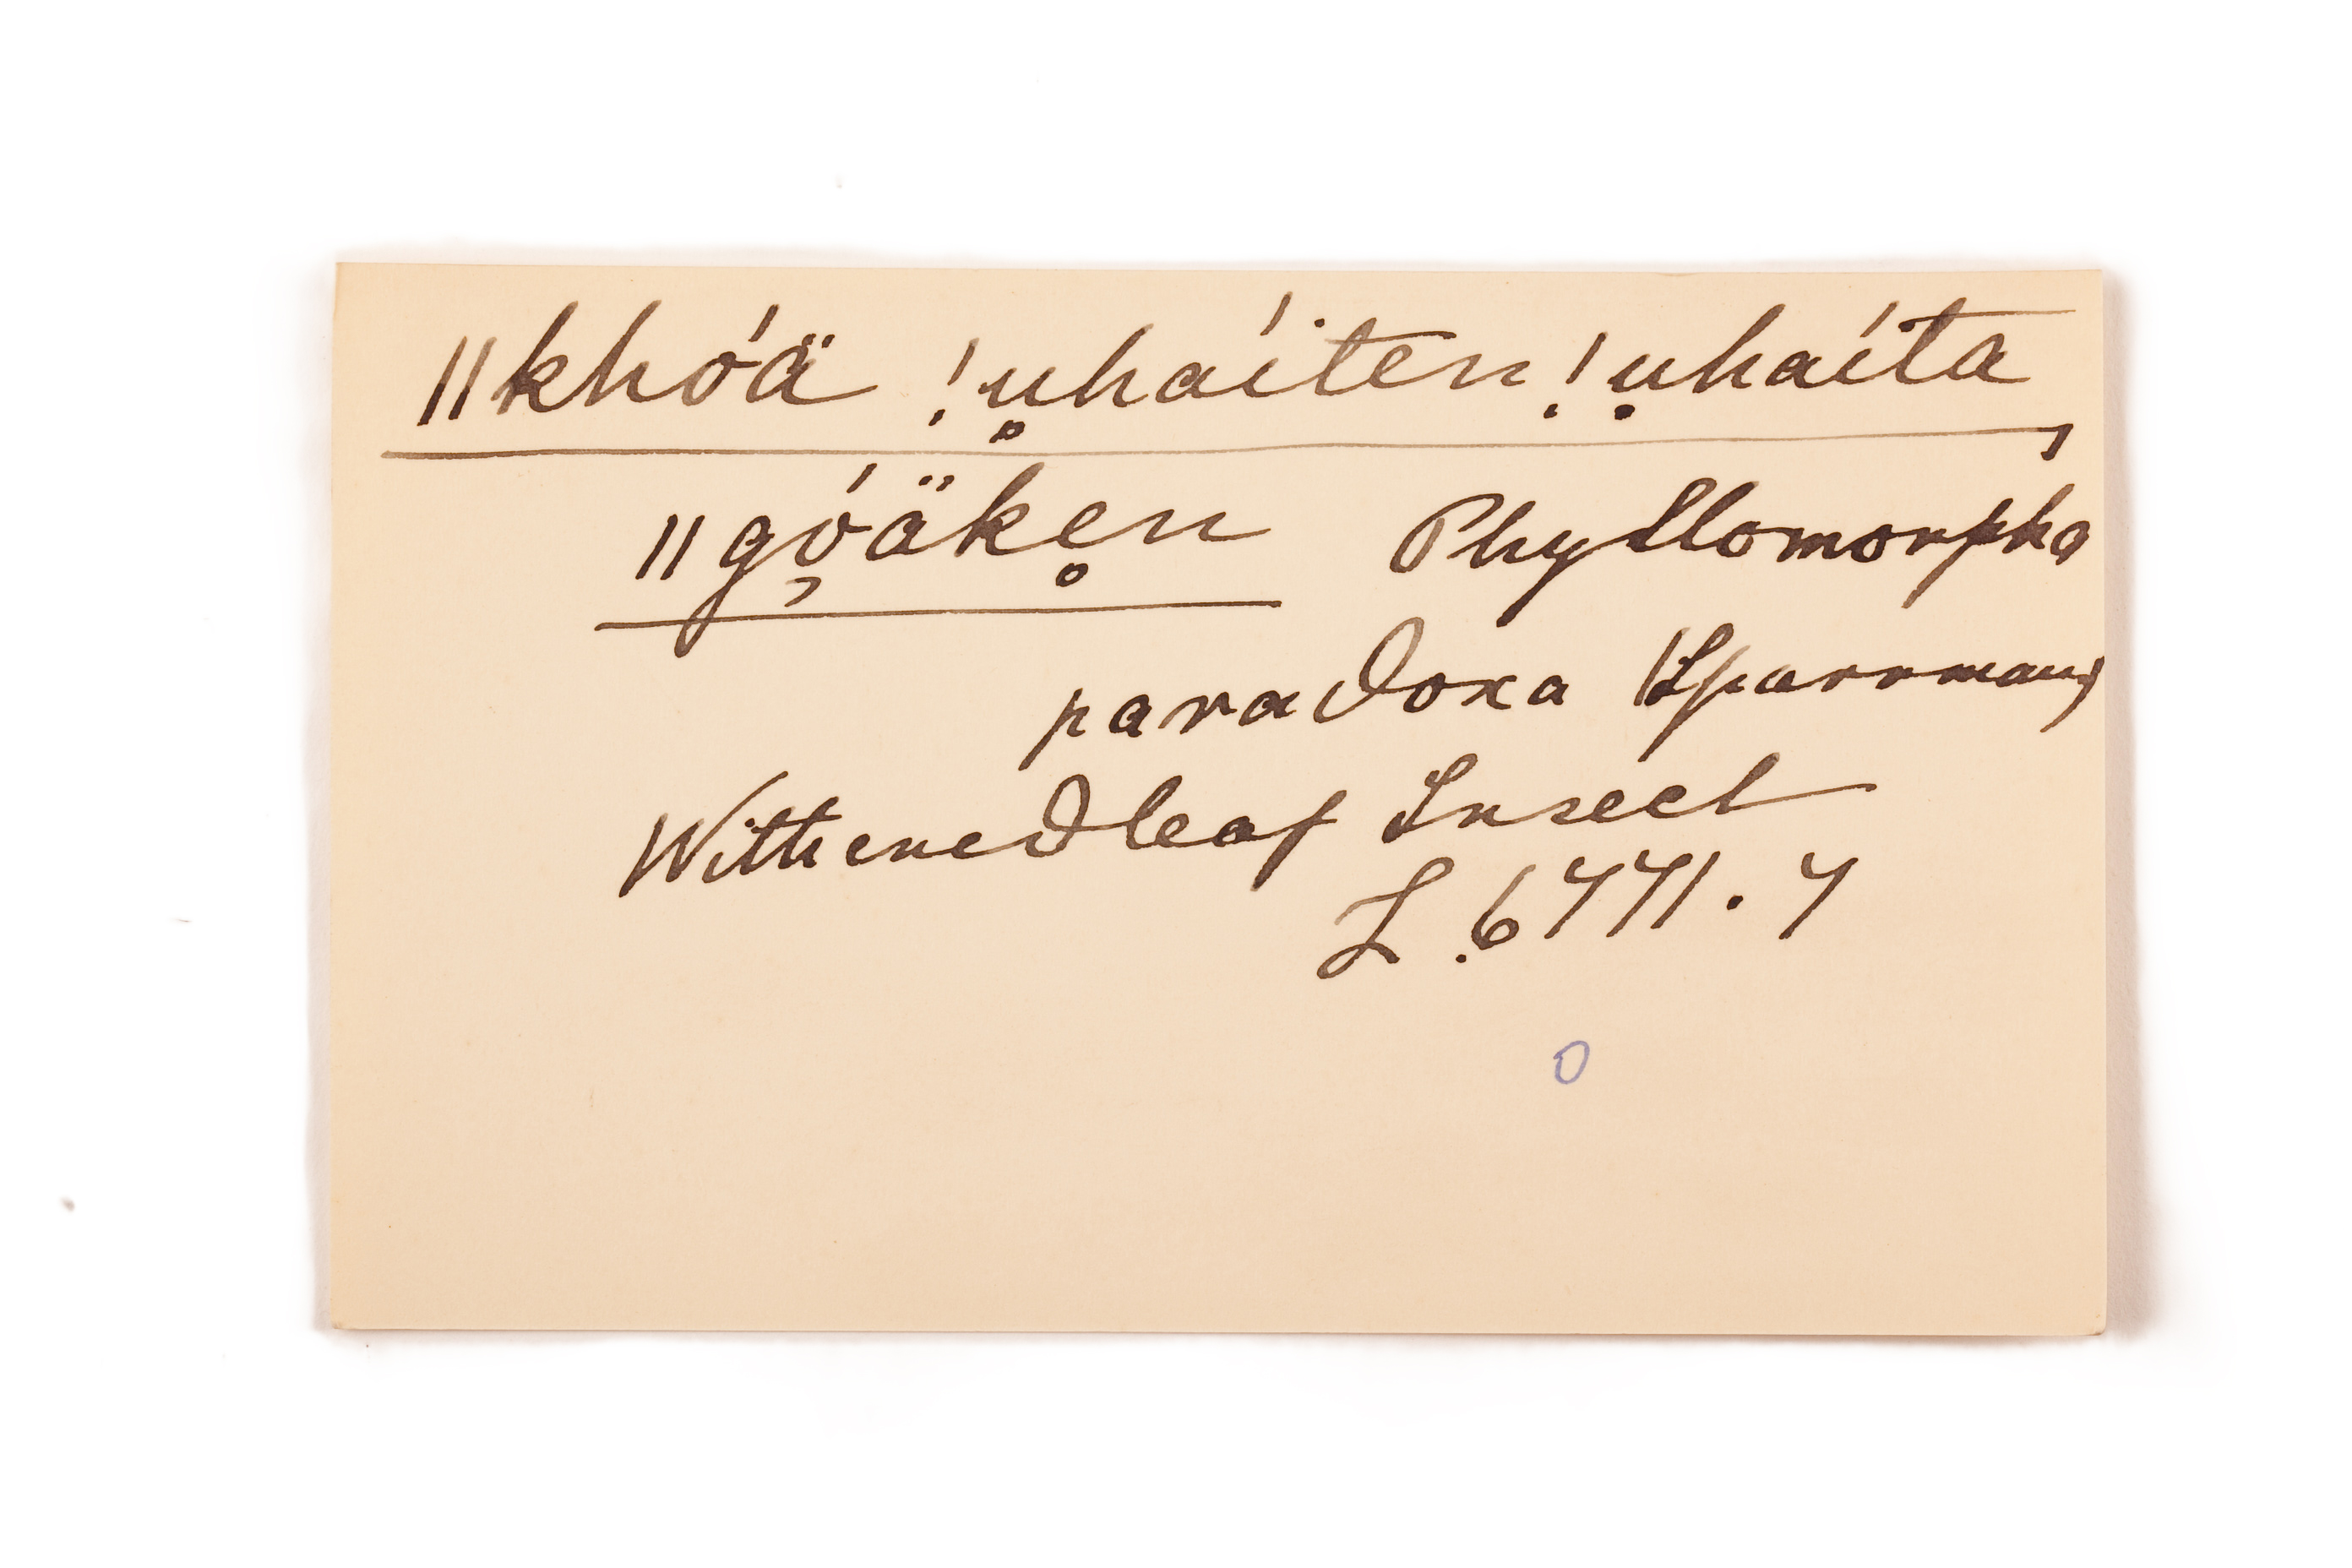 ǁkhóä !u̥háiten !ụhaíta,
ǁgó̜äke̥n Phyllomorpha
paradoxa (Sparrman)
Withered leaf Insect
L. 6771. 7
0